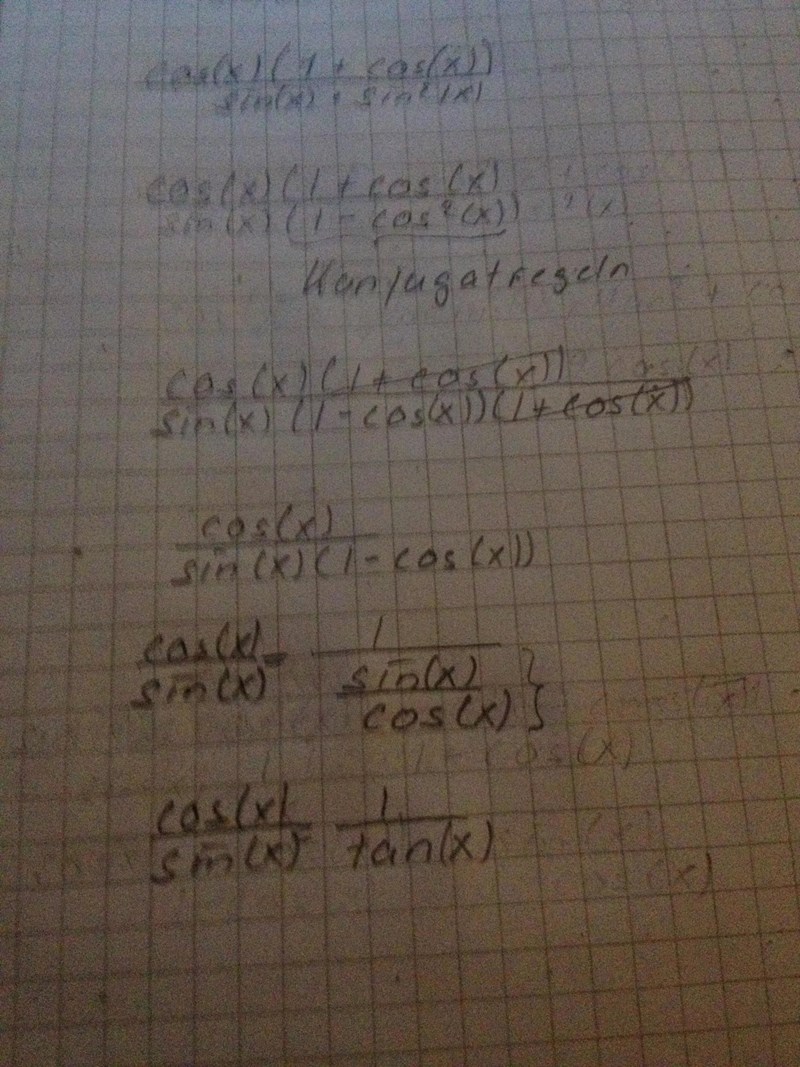 cos(x)(1 + cos(x))
sin(x) · sin²(x)
cos(x)(1 + cos(x)
sin(x)(1 - cos²(x))
Konjugatregeln
cos(x)(1 + cos(x))
sin(x)(1 - cos(x))(1 + cos(x))
cos(x)
sin(x)(1 - cos(x))
cos(x) = 1
sin(x) sin(x)
cos(x) }
1 - cos(x)
cos(x) = 1
sin(x) tan(x)